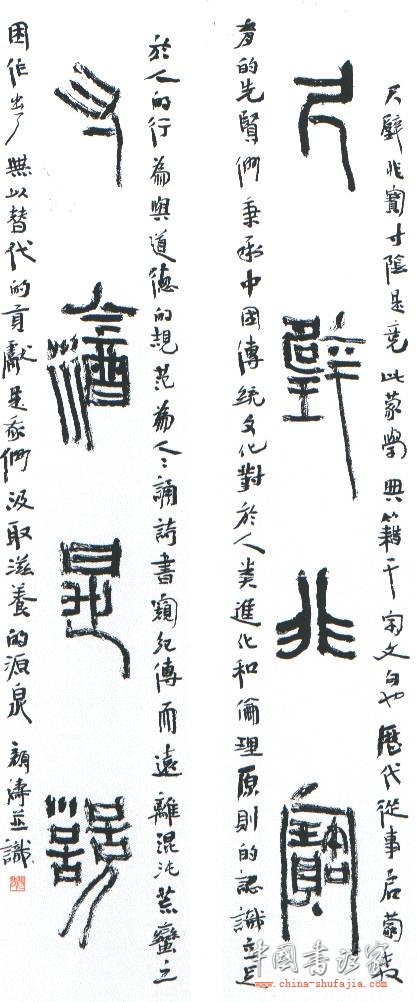 尺璧非寶
寸陰是競
尺璧非寶寸陰是竞此蒙學典籍千字文句也歷代從事启蒙教
育的先賢們秉承中國傳統文化對於人类進化和倫理原則的認識立足
於人的行為與道德的規范為人々誦詩書窺紀傳而遠離混沌荒蠻之
困作出了無以替代的貢獻是我們汲取滋養的源泉 顏濤並識
中國書法家
www.china-shufajia.com